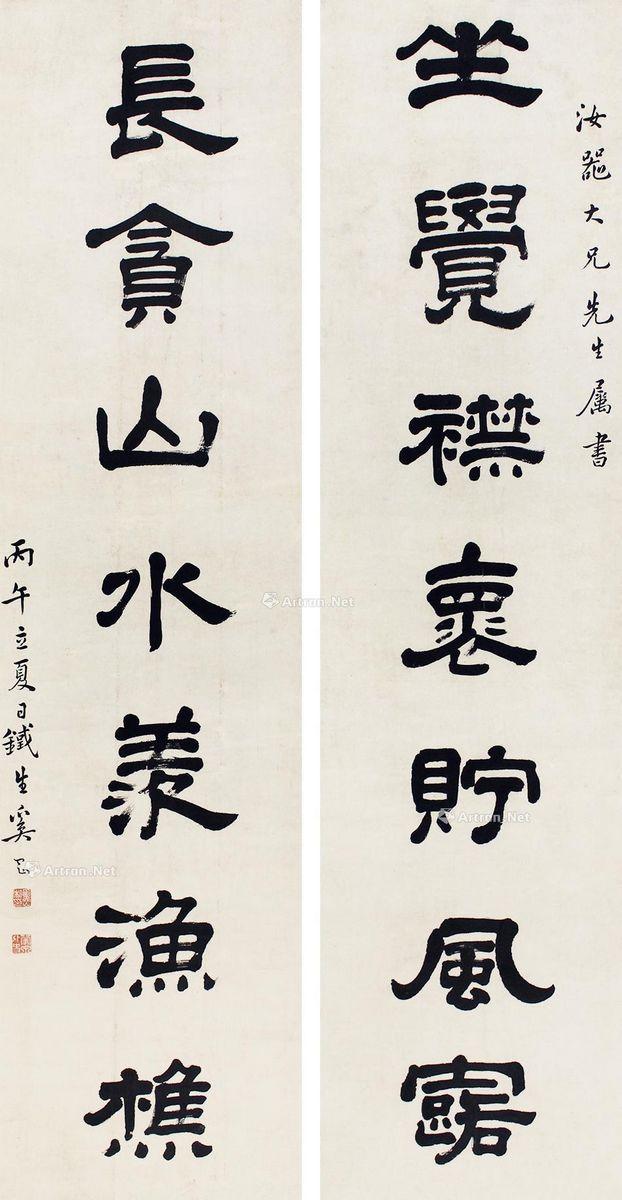 汝大兄先生属書
坐覺襟褱貯風露
長貪山水羨漁樵
丙午立夏日鐵生奚岡
Artron.Net
Artron.Net
Artron.Net